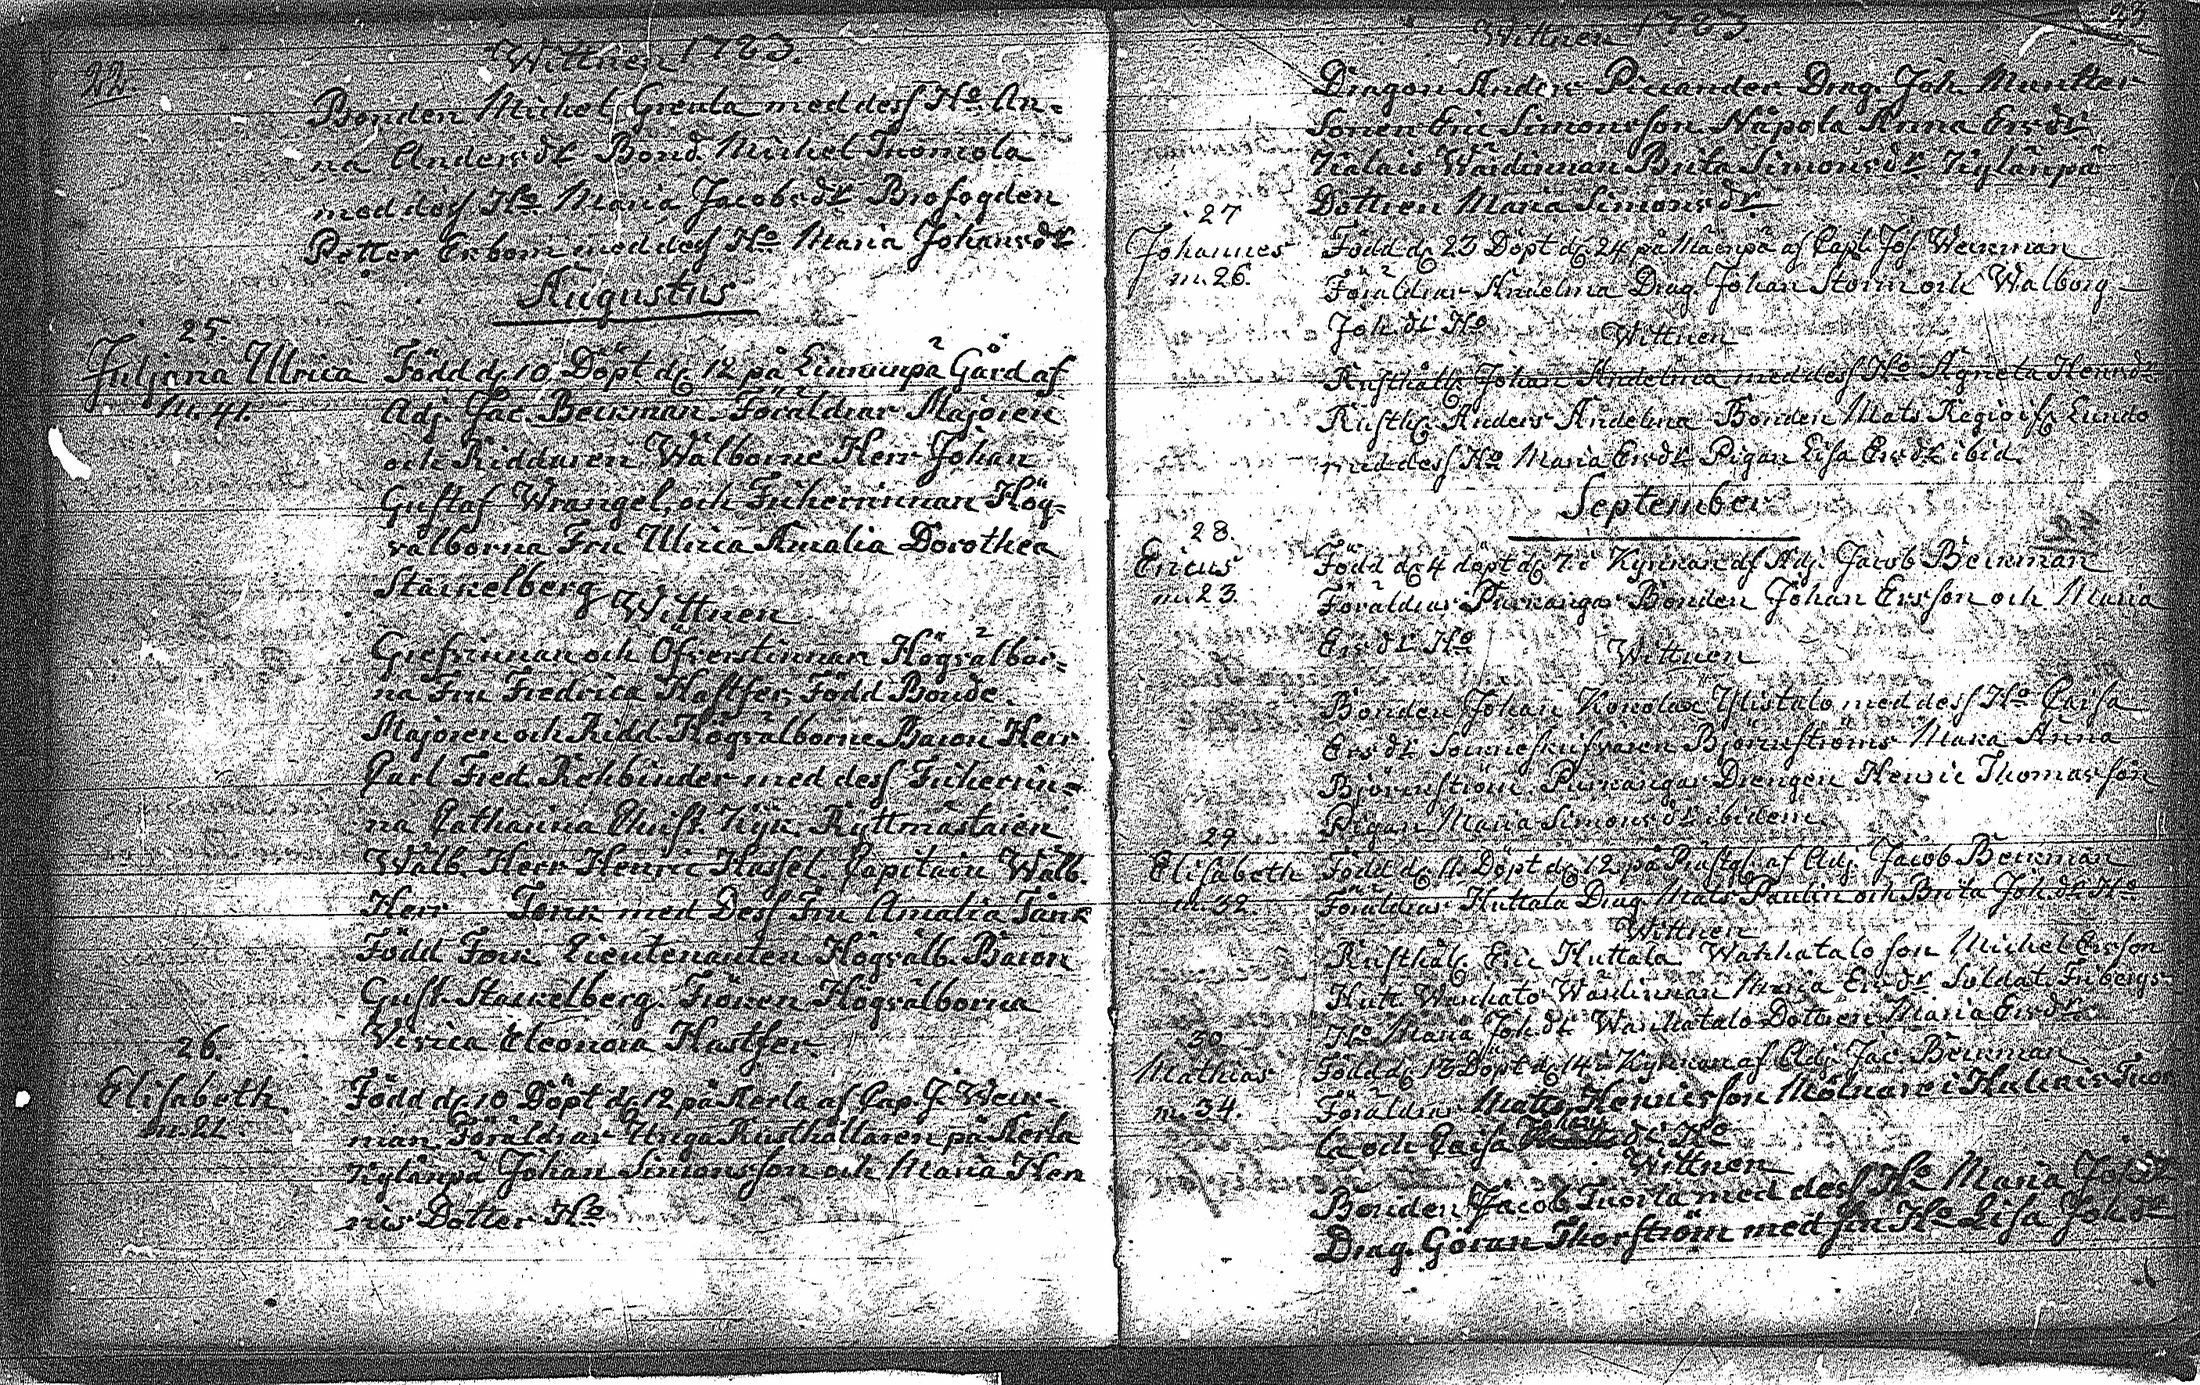 22.
Wittnen 1783.
Bonden Michel Greula med dess Ho An-
na Andersdr Bond. Michel Tuomola
med dess Ho Maria Jacobsdr Brofogden
Petter Ekbom med dess Ho Maria Johansdr
Augustus
25.
Juliana Ulrica
m. 41.
Född d. 10 Döpt d. 12 på Gård af
Adj. Jac. Beckman. Föräldrar Majoren
och Riddaren Wälborne Herr Johan
Gustaf Wrangel, och Friherrinnan Hög-
välborna Fru Ulrica Amalia Dorothea
Stackelberg
Wittnen
Grefvinnan och Öfverstinnan Högvälbor-
na Fru Fredrica Hastfer, Född Bonde.
Majoren och Ridd. Högvälborne Baron Herr
Carl Fred. Rehbinder med dess Friherrin-
na Catharina Christ. Ryttmästaren
Wälb. Herr Henric Hassel Capitain Wälb.
Herr med Dess Fru Amalia
Född Lieutenanten Högvälb. Baron
Gust. Stackelberg. Fröken Högvälborna
Virica Eleonora Hastfer
26.
Elisabeth
m. 22
Född d. 10 Döpt d. 12 på Kerla af Cap. J. Weck-
man Föräldrar Unga Rusthållaren på Kerla
Kylänpä Johan Simonsson och Maria Hen
rics Dotter Ho
23
Wittnen 1783
Dragon Anders Drag. Joh. Munter
Sonen Eric Simonsson Näpola Anna Ersdr
Wärdinnan Brita Simonsdr Kylänpä
Dottren Maria Simonsdr
27
Johannes
m. 26.
Född d. 23 Döpt d. 24 på af Capl. Jos. Weckman
Föräldrar Andelma Drag. Johan Storm och Walborg
Joh.dr Ho
Wittnen
Rusthåll. Johan Andelma med dess Ho Agneta Henr.dr
Rusth. Anders Andelma Bonden Mats Lundo
med dess Ho Maria Ersdr Pigan Lisa Ersdr ibid.
September
28.
Ericus
m. 23.
Född d. 4 döpt d. 7 i Kyrkan af Adj. Jacob Beckman
Föräldrar Bonden Johan Ersson och Maria
Ersdr Ho
Wittnen
Bonden Johan Ylistalo med dess Ho Caisa
Ersdr Björnströms Maria Anna
Björnström. Drengen Henric Thomasson
Pigan Maria Simonsdr ibidem
29
Elisabeth
m. 32.
Född d. 11 Döpt d. 12 på Prästg. af Adj. Jacob Beckman
Föräldrar Huttala Drag. Mats Paulin och Brita Joh.dr Ho
Wittnen
Rusthål. Eric Huttala Wanhatalo son Michel Ersson
Hutt. Wanhato Wärdinnan Maria Ersdr Soldat Fribergs
Ho Maria Joh.dr Wanhatalo Dottren Maria Ersdr
30
Mathias
m. 34.
Född d. 13 Döpt d. 14 i Kyrkan af Adj. Jac. Beckman
Föräldrar Mats Henricsson Mölnare i Tuor
la och Caisa dr Ho
Wittnen
Bonden Jacob Tuorla med dess Ho Maria Joh.dr
Drag. Göran Thorström med sin Ho Lisa Joh.dr